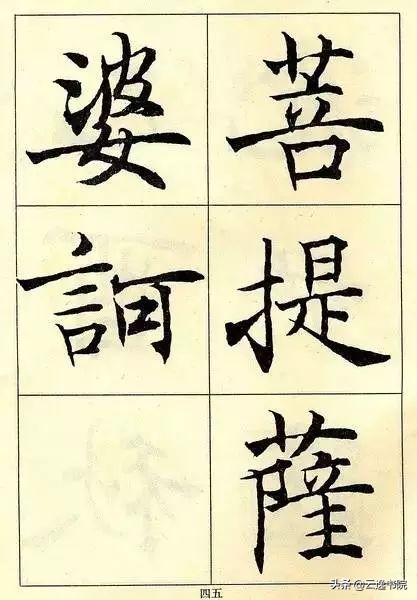 菩提薩
婆訶
四五
头条 @云逸书院